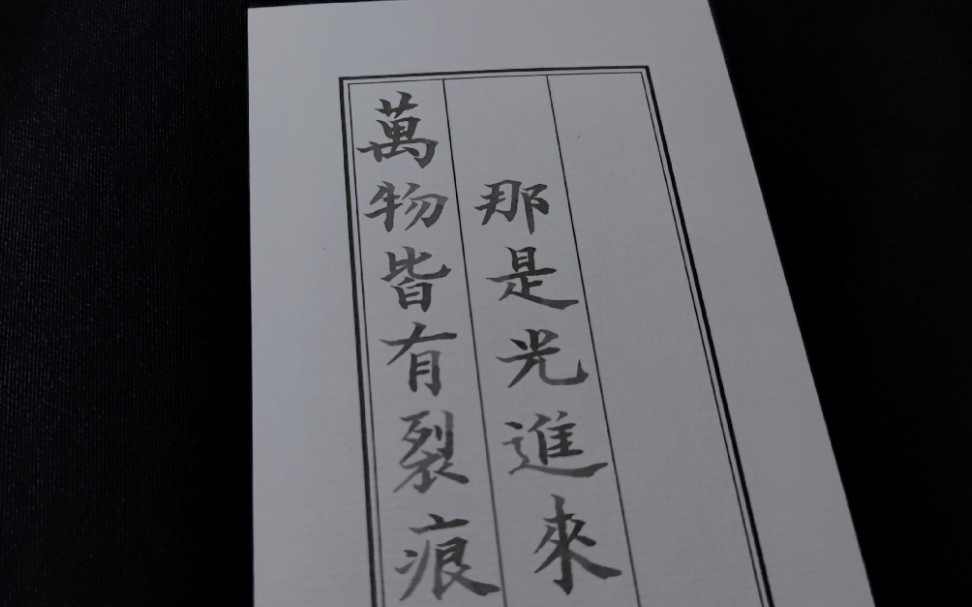 萬物皆有裂痕
那是光進來